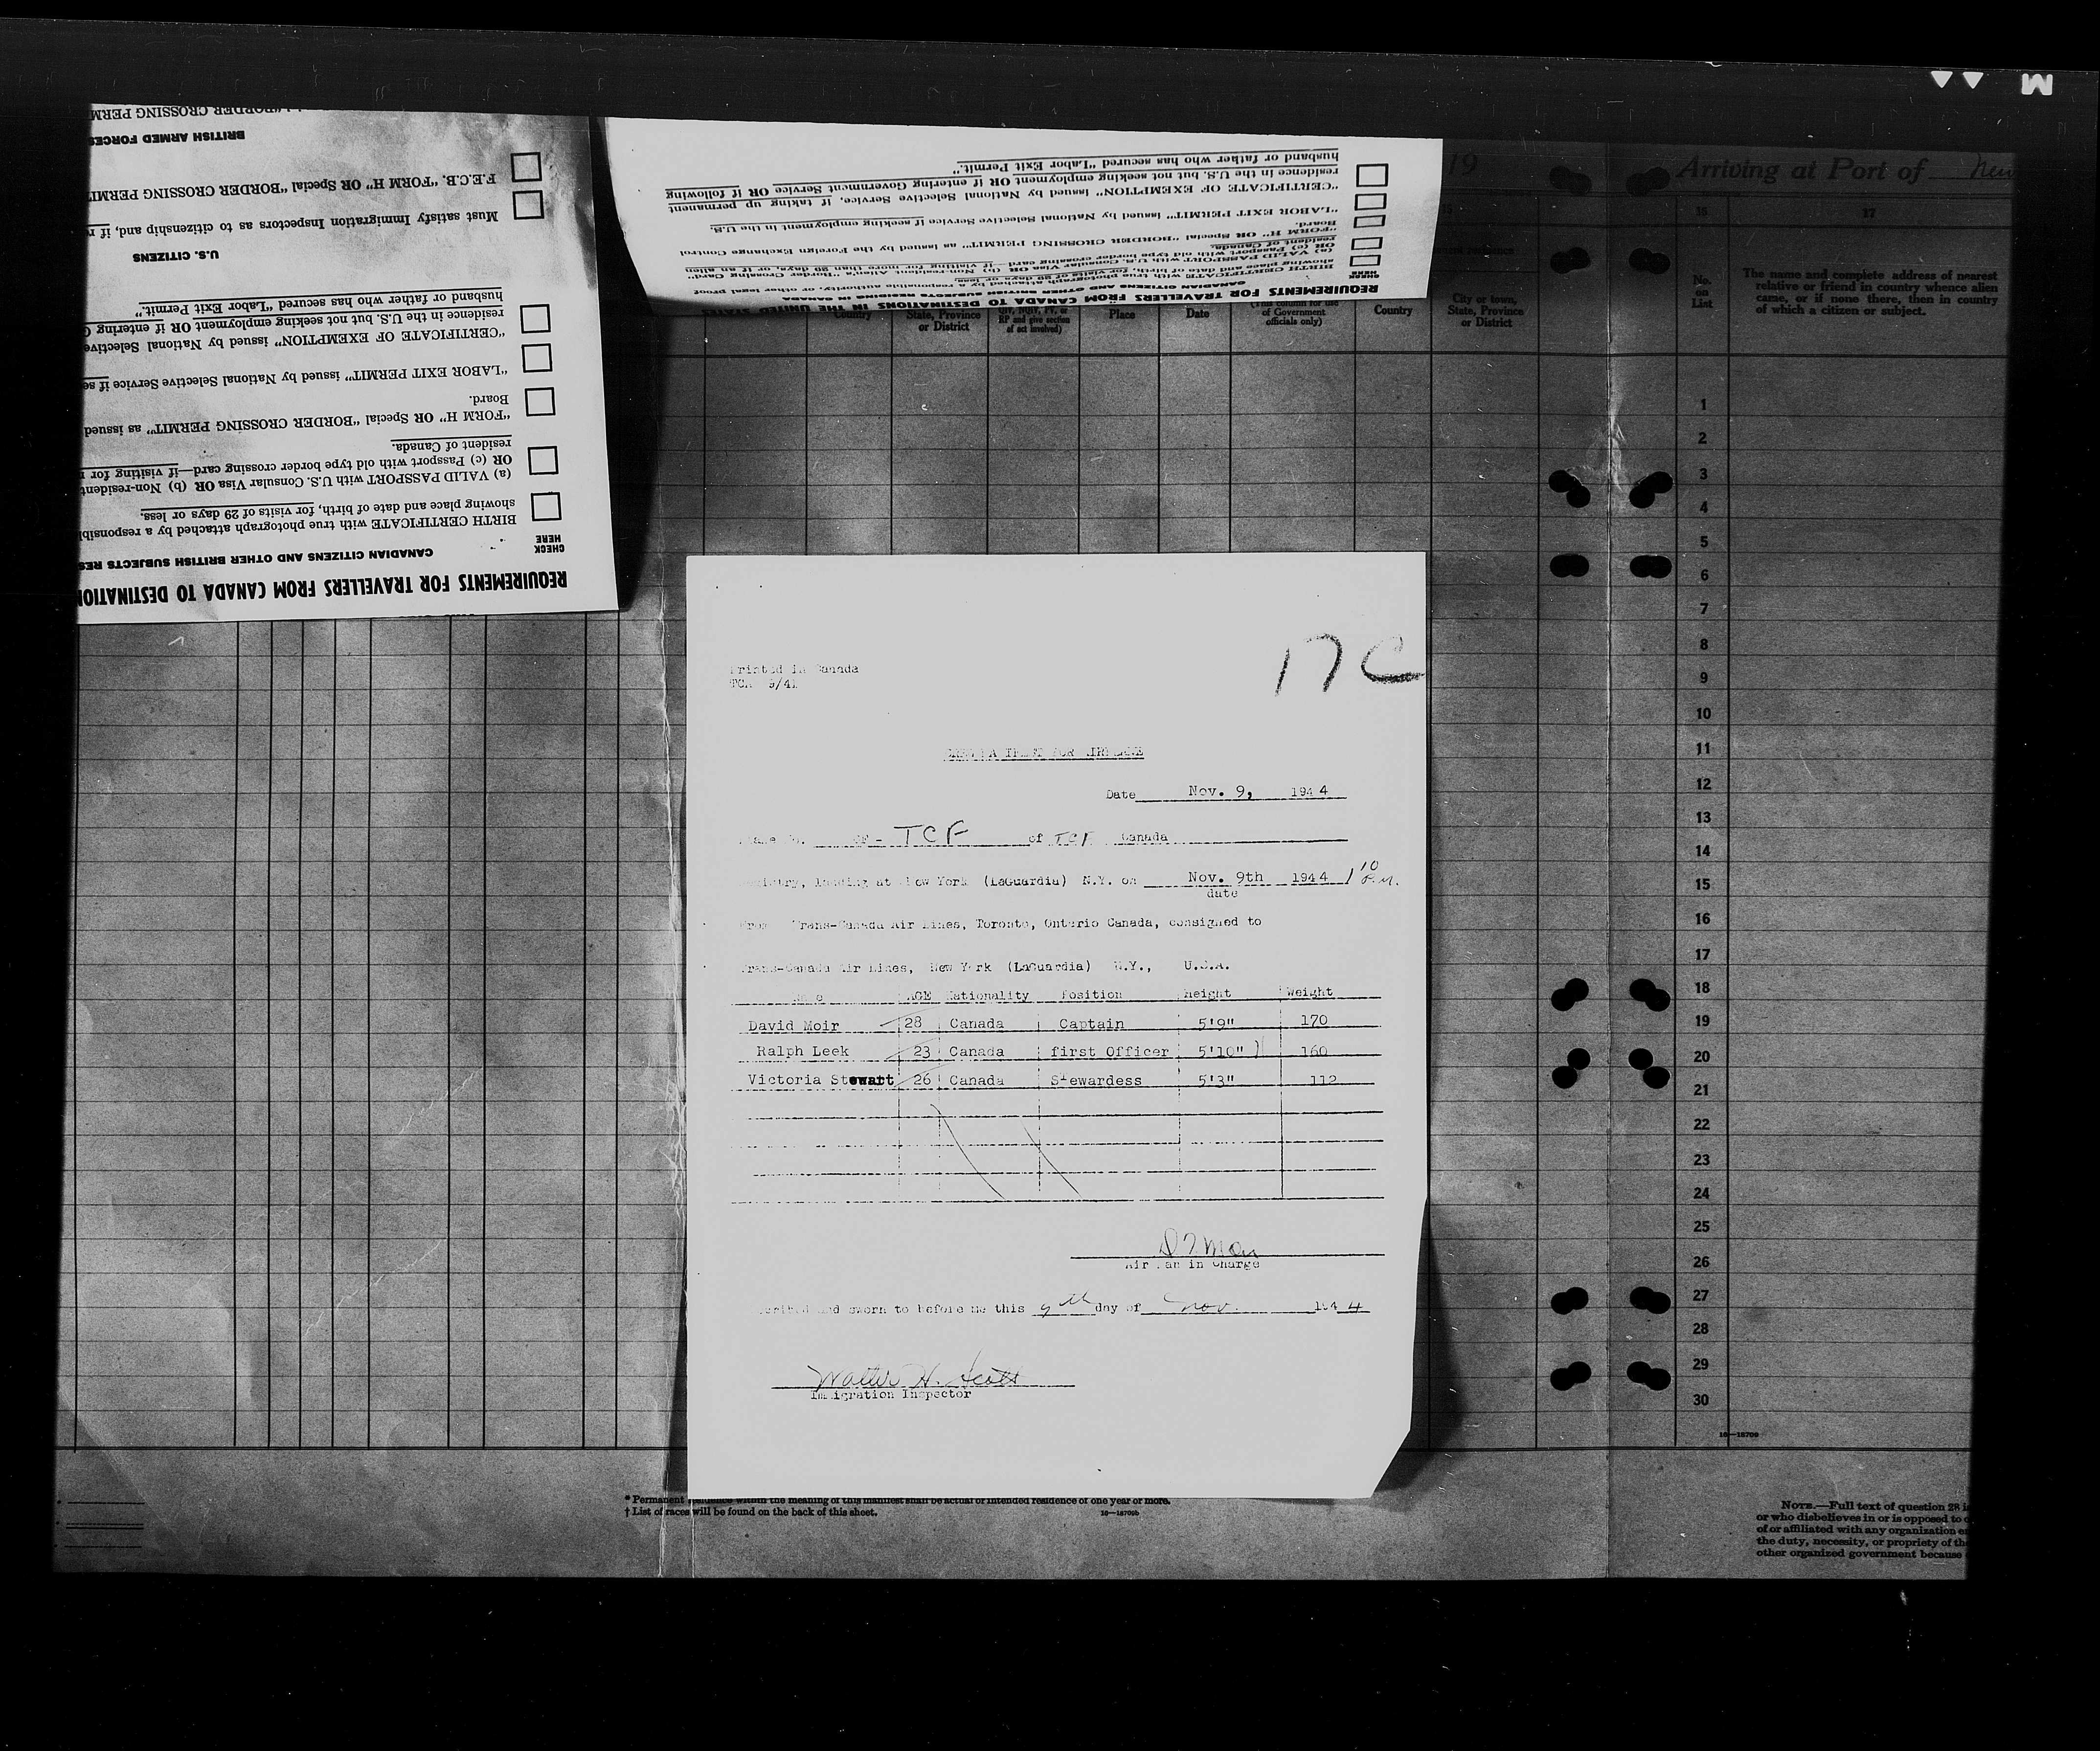 M
BORDER CROSSING PERM
BRITISH ARMED FORCES
F.E.C.B. "FORM H" OR Special "BORDER CROSSING PERMIT
Must satisfy Immigration Inspectors as to citizenship and, if r
U.S. CITIZENS
husband or father who has secured "Labor Exit Permit."
residence in the U.S. but not seeking employment OR if entering G
"CERTIFICATE OF EXEMPTION" issued by National Selective
"LABOR EXIT PERMIT" issued by National Selective Service if se
Board.
"FORM H" OR Special "BORDER CROSSING PERMIT" as issued
resident of Canada.
OR (c) Passport with old type border crossing card—if visiting for
(a) VALID PASSPORT with U.S. Consular Visa OR (b) Non-resident
showing place and date of birth, for visits of 29 days or less.
BIRTH CERTIFICATE with true photograph attached by a responsib
CHECK HERE
CANADIAN CITIZENS AND OTHER BRITISH SUBJECTS RES
REQUIREMENTS FOR TRAVELLERS FROM CANADA TO DESTINATION
husband or father who has secured "Labor Exit Permit."
residence in the U.S. but not seeking employment OR if entering Government Service OR if following
"CERTIFICATE OF EXEMPTION" issued by National Selective Service, if taking up permanent
"LABOR EXIT PERMIT" issued by National Selective Service if seeking employment in the U.S.
Board.
"FORM H" OR Special "BORDER CROSSING PERMIT" as issued by the Foreign Exchange Control
resident of Canada.
OR (c) Passport with old type border crossing card—if visiting for more than 29 days, or if an alien
(a) VALID PASSPORT with U.S. Consular Visa OR (b) Non-resident Alien's "Border Crossing Card."
showing place and date of birth, for visits of 29 days or less.
BIRTH CERTIFICATE with true photograph attached by a responsible authority, or other legal proof
CHECK HERE
CANADIAN CITIZENS AND OTHER BRITISH SUBJECTS RESIDING IN CANADA
REQUIREMENTS FOR TRAVELLERS FROM CANADA TO DESTINATIONS IN THE UNITED STATES
19
Arriving at Port of New
Country
State, Province or District
Place
Date
of Government officials only)
Country
City or town, State, Province or District
16
17
No. on List
The name and complete address of nearest
relative or friend in country whence alien
came, or if none there, then in country
of which a citizen or subject.
1
2
3
4
5
6
7
8
9
10
11
12
13
14
15
16
17
18
19
20
21
22
23
24
25
26
27
28
29
30
16—18709
17 C
Printed in Canada
TCA 9/41
Date Nov. 9, 1944
CF - TCF of TCF Canada
Registry, landing at New York (LaGuardia) N.Y. on Nov. 9th 1944 1 10 P.M.
date
From Trans-Canada Air Lines, Toronto, Ontario Canada, consigned to
Trans-Canada Air Lines, New York (LaGuardia) N.Y., U.S.A.
Name AGE Nationality Position Height Weight
David Moir 28 Canada Captain 5'9" 170
Ralph Leek 23 Canada first Officer 5'10" 160
Victoria Stewart 26 Canada Stewardess 5'3" 112
Air Man in Charge
and sworn to before me this 9th day of Nov. 1944
Walter H. Scott
Immigration Inspector
* Permanent residence within the meaning of this manifest shall be actual or intended residence of one year or more.
† List of races will be found on the back of this sheet.
16—18709b
NOTE.—Full text of question 28 i
or who disbelieves in or is opposed to o
of or affiliated with any organization e
the duty, necessity, or propriety of th
other organized government because